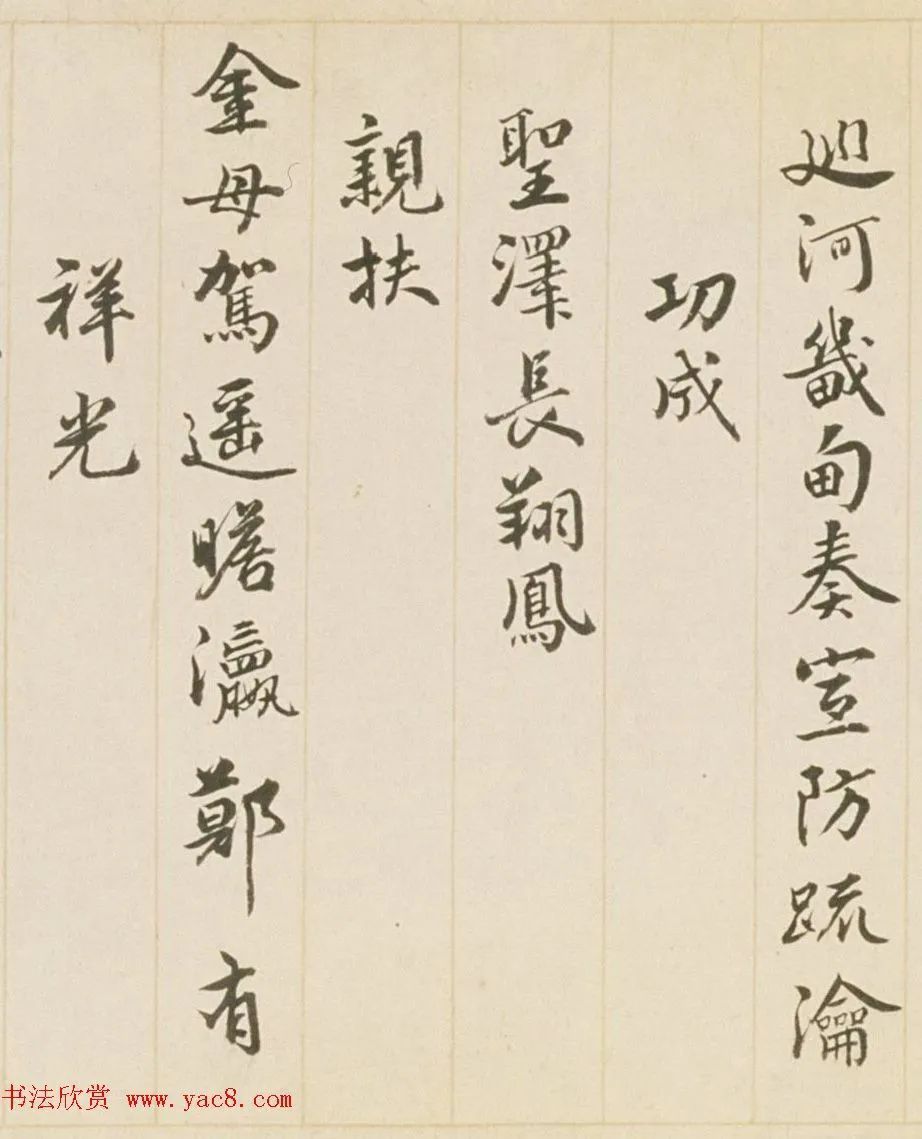 廵河畿甸奏宣防疏瀹
功成
聖澤長翔鳳
親扶
金母駕遥瞻瀛鄚有
祥光
书法欣赏 www.yac8.com